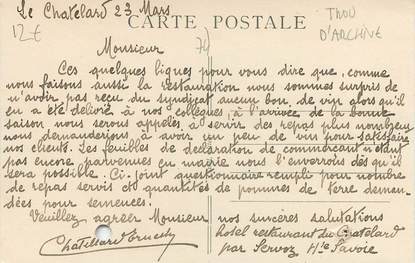 Le Chatelard 23 Mars
CARTE POSTALE
TROU
D'ARCHIVE
12€
74
Monsieur
Ces quelques lignes pour vous dire que, comme
nous faisons aussi la restauration nous sommes surpris de
n'avoir pas reçu du syndicat aucun bon, de vin alors qu'il
en a été délivré à nos collègues à l'arrivée de la bonne
saison nous seront appelés à servir des repas plus nombreux
nous demanderions à avoir un peu de vin pour satisfaire
nos clients. Les feuilles de déclaration de commerçant n'étant
pas encore parvenues en mairie nous l'enverrons dès qu'il
sera possible. Ci-joint questionnaire rempli pour nombre
de repas servis et quantités de pommes de terre deman-
dées pour semences.
Veuillez agréer Monsieur nos sincères salutations
Chatellard Ernest
hotel restaurant du Chatelard
par Servoz Hte Savoie